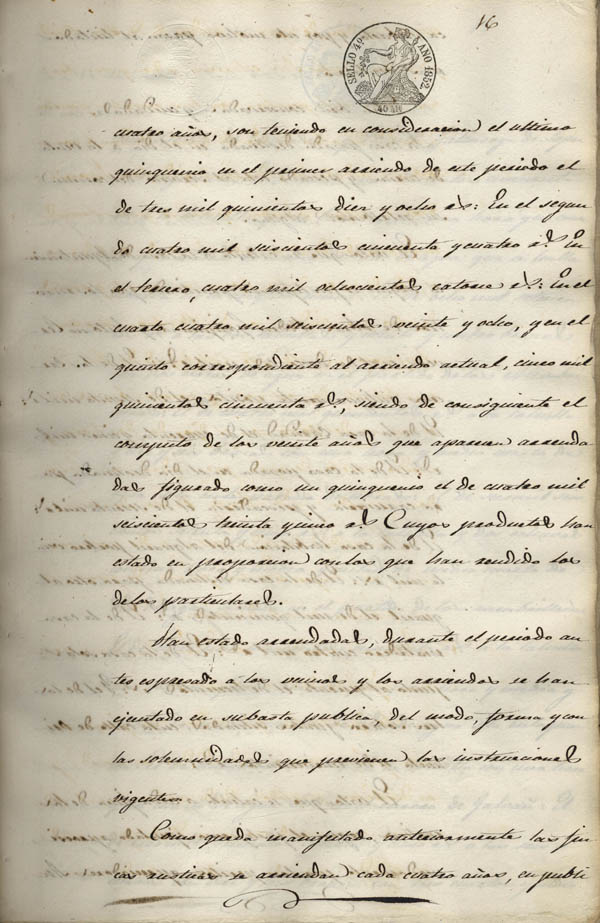 16
SELLO 4º AÑO 1852.
40 MS
cuatro años, son teniendo en consideracion el ultimo
quinquenio en el primer arriendo de este periodo el
de tres mil quinientos diez y ocho rs: En el segun
do cuatro mil seiscientos cincuenta y cuatro rs En
el tercero, cuatro mil ochocientos catorce rs: En el
cuarto cuatro mil seiscientos veinte y ocho, y en el
quinto correspondiente al arriendo actual, cinco mil
quinientos cincuenta rs, siendo de consiguiente el
conjunto de los veinte años que aparecen arrenda
das figurado como un quinquenio el de cuatro mil
seiscientos treinta y cinco rs Cuyos productos han
estado en proporcion con los que han rendido los
de los particulares.
Han estado arrendadas, durante el periodo an
tes espresado a los vecinos y los arriendos se han
ejecutado en subasta publica, del modo, forma y con
las solemnidades que previenen las instrucciones
vigentes.
Como queda manifestado anteriormente las fin
cas rusticas se arriendan cada cuatro años, en publi